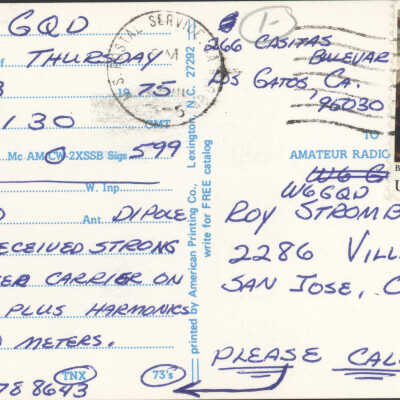 GQD
THURSDAY
1975
130 GMT
Mc AM/CW-2XSSB Sigs 599
W. Inp.
Ant DIPOLE
RECEIVED STRONG
CARRIER ON
PLUS HARMONICS
METERS.
78 8643
TNX 73's
printed by American Printing Co., Lexington, N.C. 27292
write for FREE catalog
POSTAL SERVICE
1-
266 CASITAS
BULEVAR
LOS GATOS, CA.
95030
TO
AMATEUR RADIO
W6GQD
ROY STROMB
2286 VILL
SAN JOSE, C
PLEASE CAL